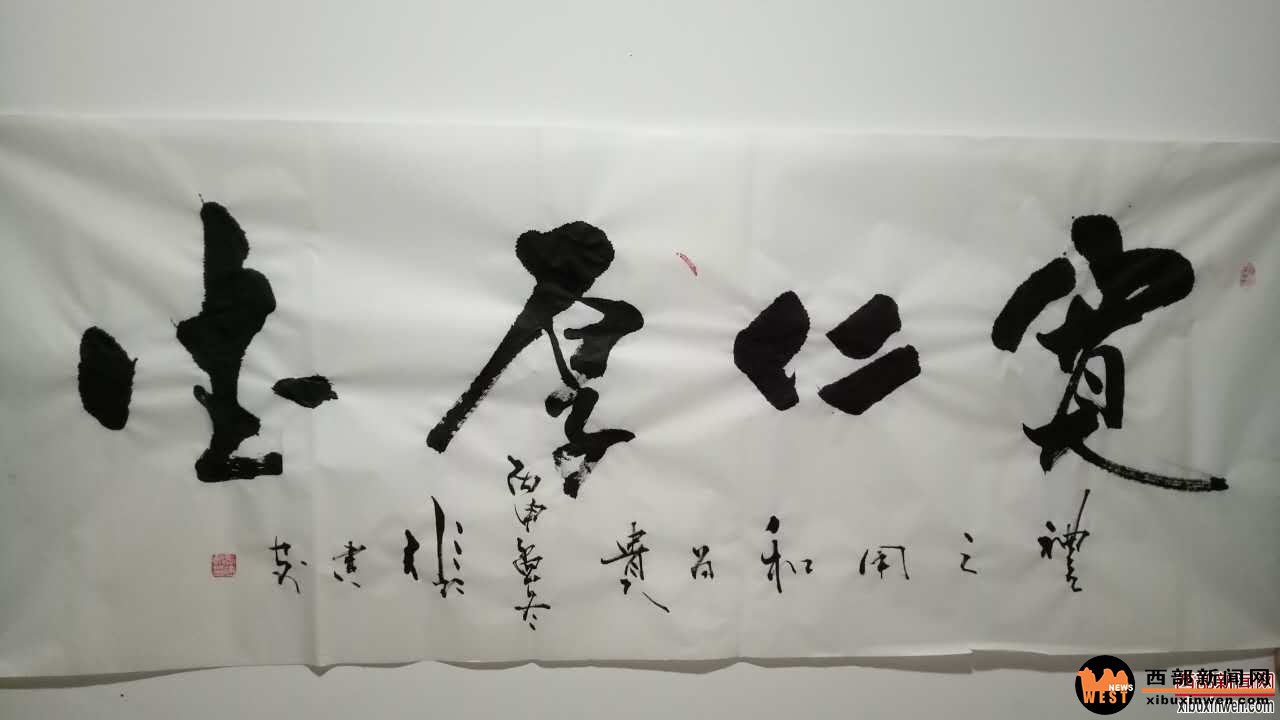 寬仁厚
禮之用和為貴
丙申
書
NEWS
WEST
西部新闻网
xibuxinwen.com